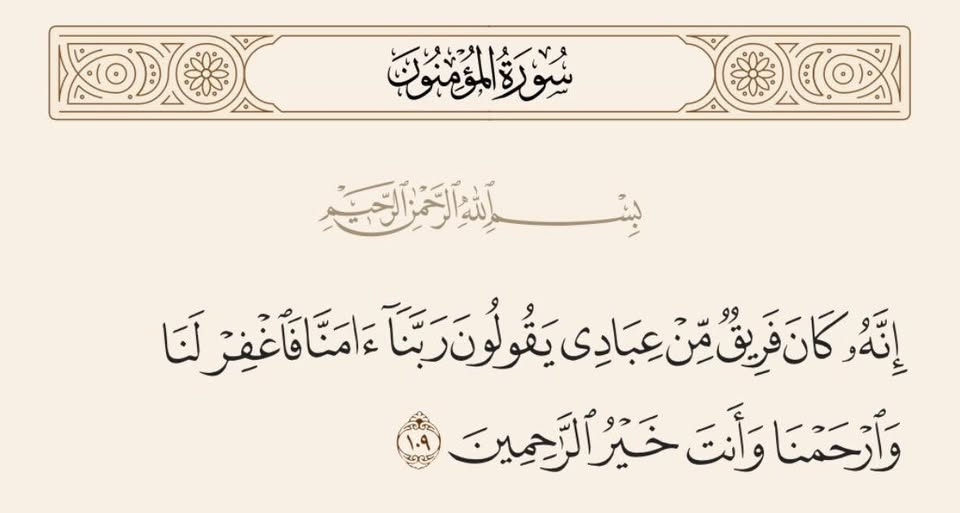 سُورَةُ المُؤْمِنُونَ
بِسْمِ ٱللَّهِ ٱلرَّحْمَٰنِ ٱلرَّحِيمِ
إِنَّهُۥ كَانَ فَرِيقٌۭ مِّنْ عِبَادِى يَقُولُونَ رَبَّنَآ ءَامَنَّا فَٱغْفِرْ لَنَا
وَٱرْحَمْنَا وَأَنتَ خَيْرُ ٱلرَّٰحِمِينَ ١٠٩